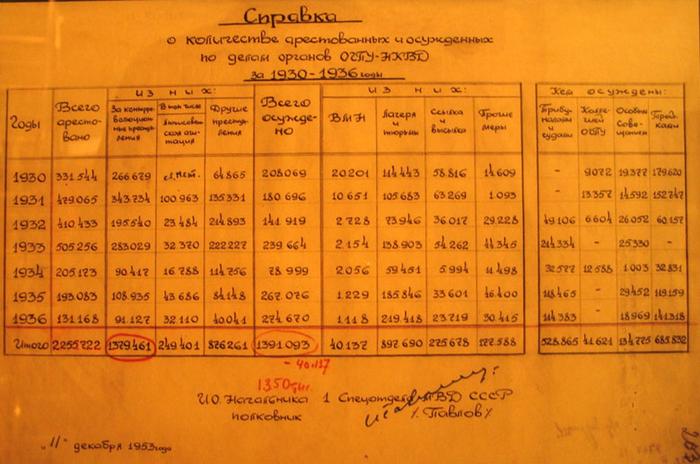 Справка
о количестве арестованных и осужденных
по делам органов ОГПУ-НКВД
за 1930-1936 годы
Годы Всего арестовано из них: За контрреволюционные преступления В том числе антисоветская агитация Другие преступления Всего осуждено из них: ВМН Лагеря и тюрьмы Ссылка и высылка Прочие меры Кем осуждены: Трибуналами и судами Коллегией ОГПУ Особым совещанием Тройками
1930 331544 266679 64865 208069 20201 114443 58.816 14609 - 9072 19377 179620
1931 479065 343734 100963 135331 180696 10651 105683 63269 1.093 - 13357 14592 152747
1932 410433 195540 23484 214893 141919 2728 73946 36017 29.228 49106 6604 26052 60157
1933 505256 283029 32370 222227 239664 2154 138903 54262 44345 214334 - 25330 -
1934 205173 90417 16788 114756 78999 2056 59451 5994 11498 32577 12588 1003 32831
1935 193083 108935 43686 84148 267076 1229 185846 33601 46400 118465 - 29452 119159
1936 131168 91127 32110 40041 274670 1118 219418 23719 30415 114383 - 18969 141318
Итого 2255722 1379461 249401 876261 1391093 40137 897690 275678 177588 528865 41621 134775 685832
- 40.137
1350
И.О. Начальника 1 Спецотдела МВД СССР
полковник /Павлов/
"11" декабря 1953 года